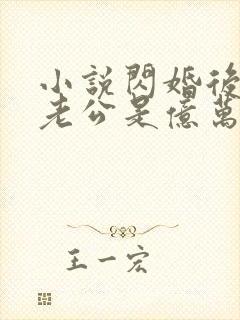 小說閃婚後
老公是億萬
王一宏